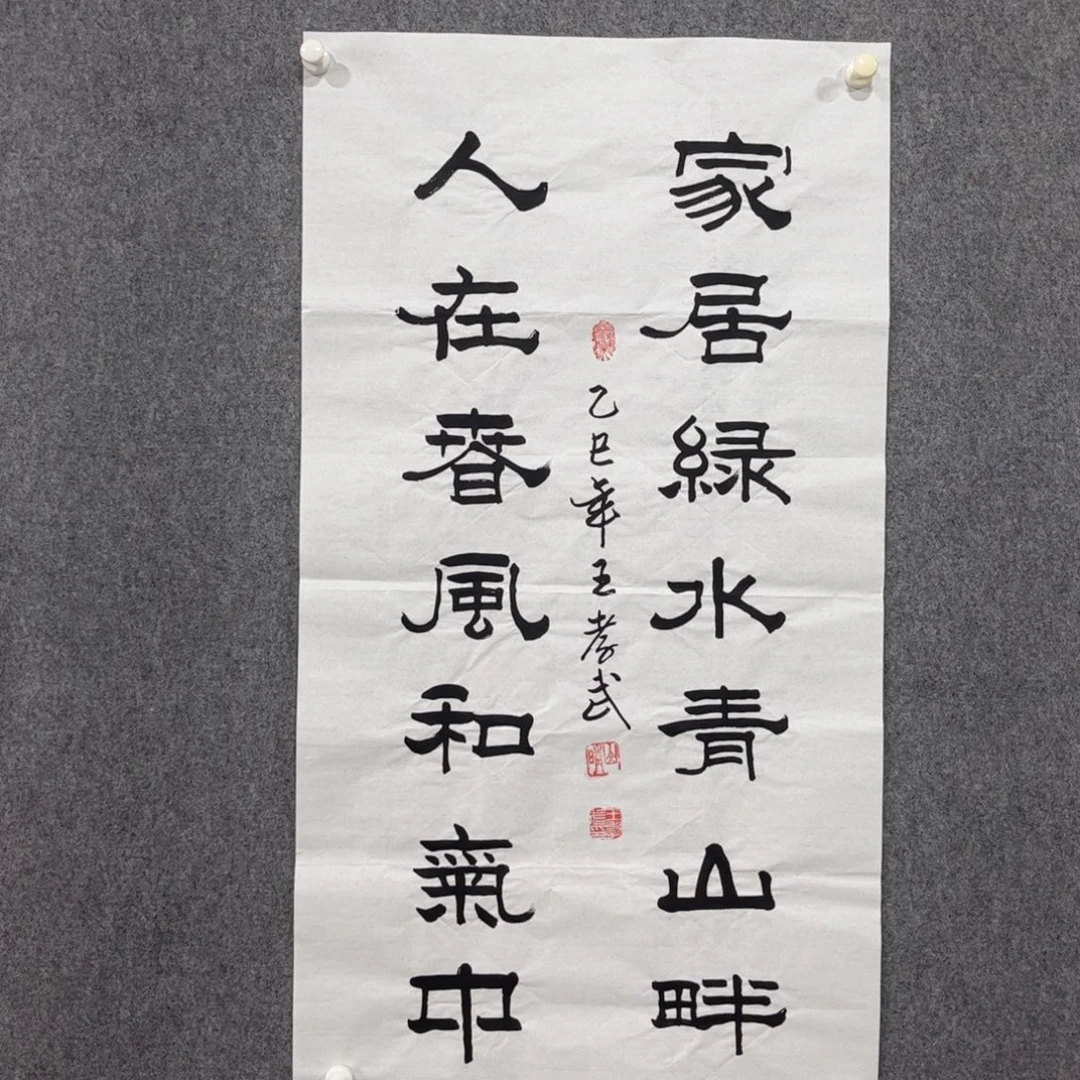 家居緑水青山畔
人在春風和氣中
乙巳年王孝武